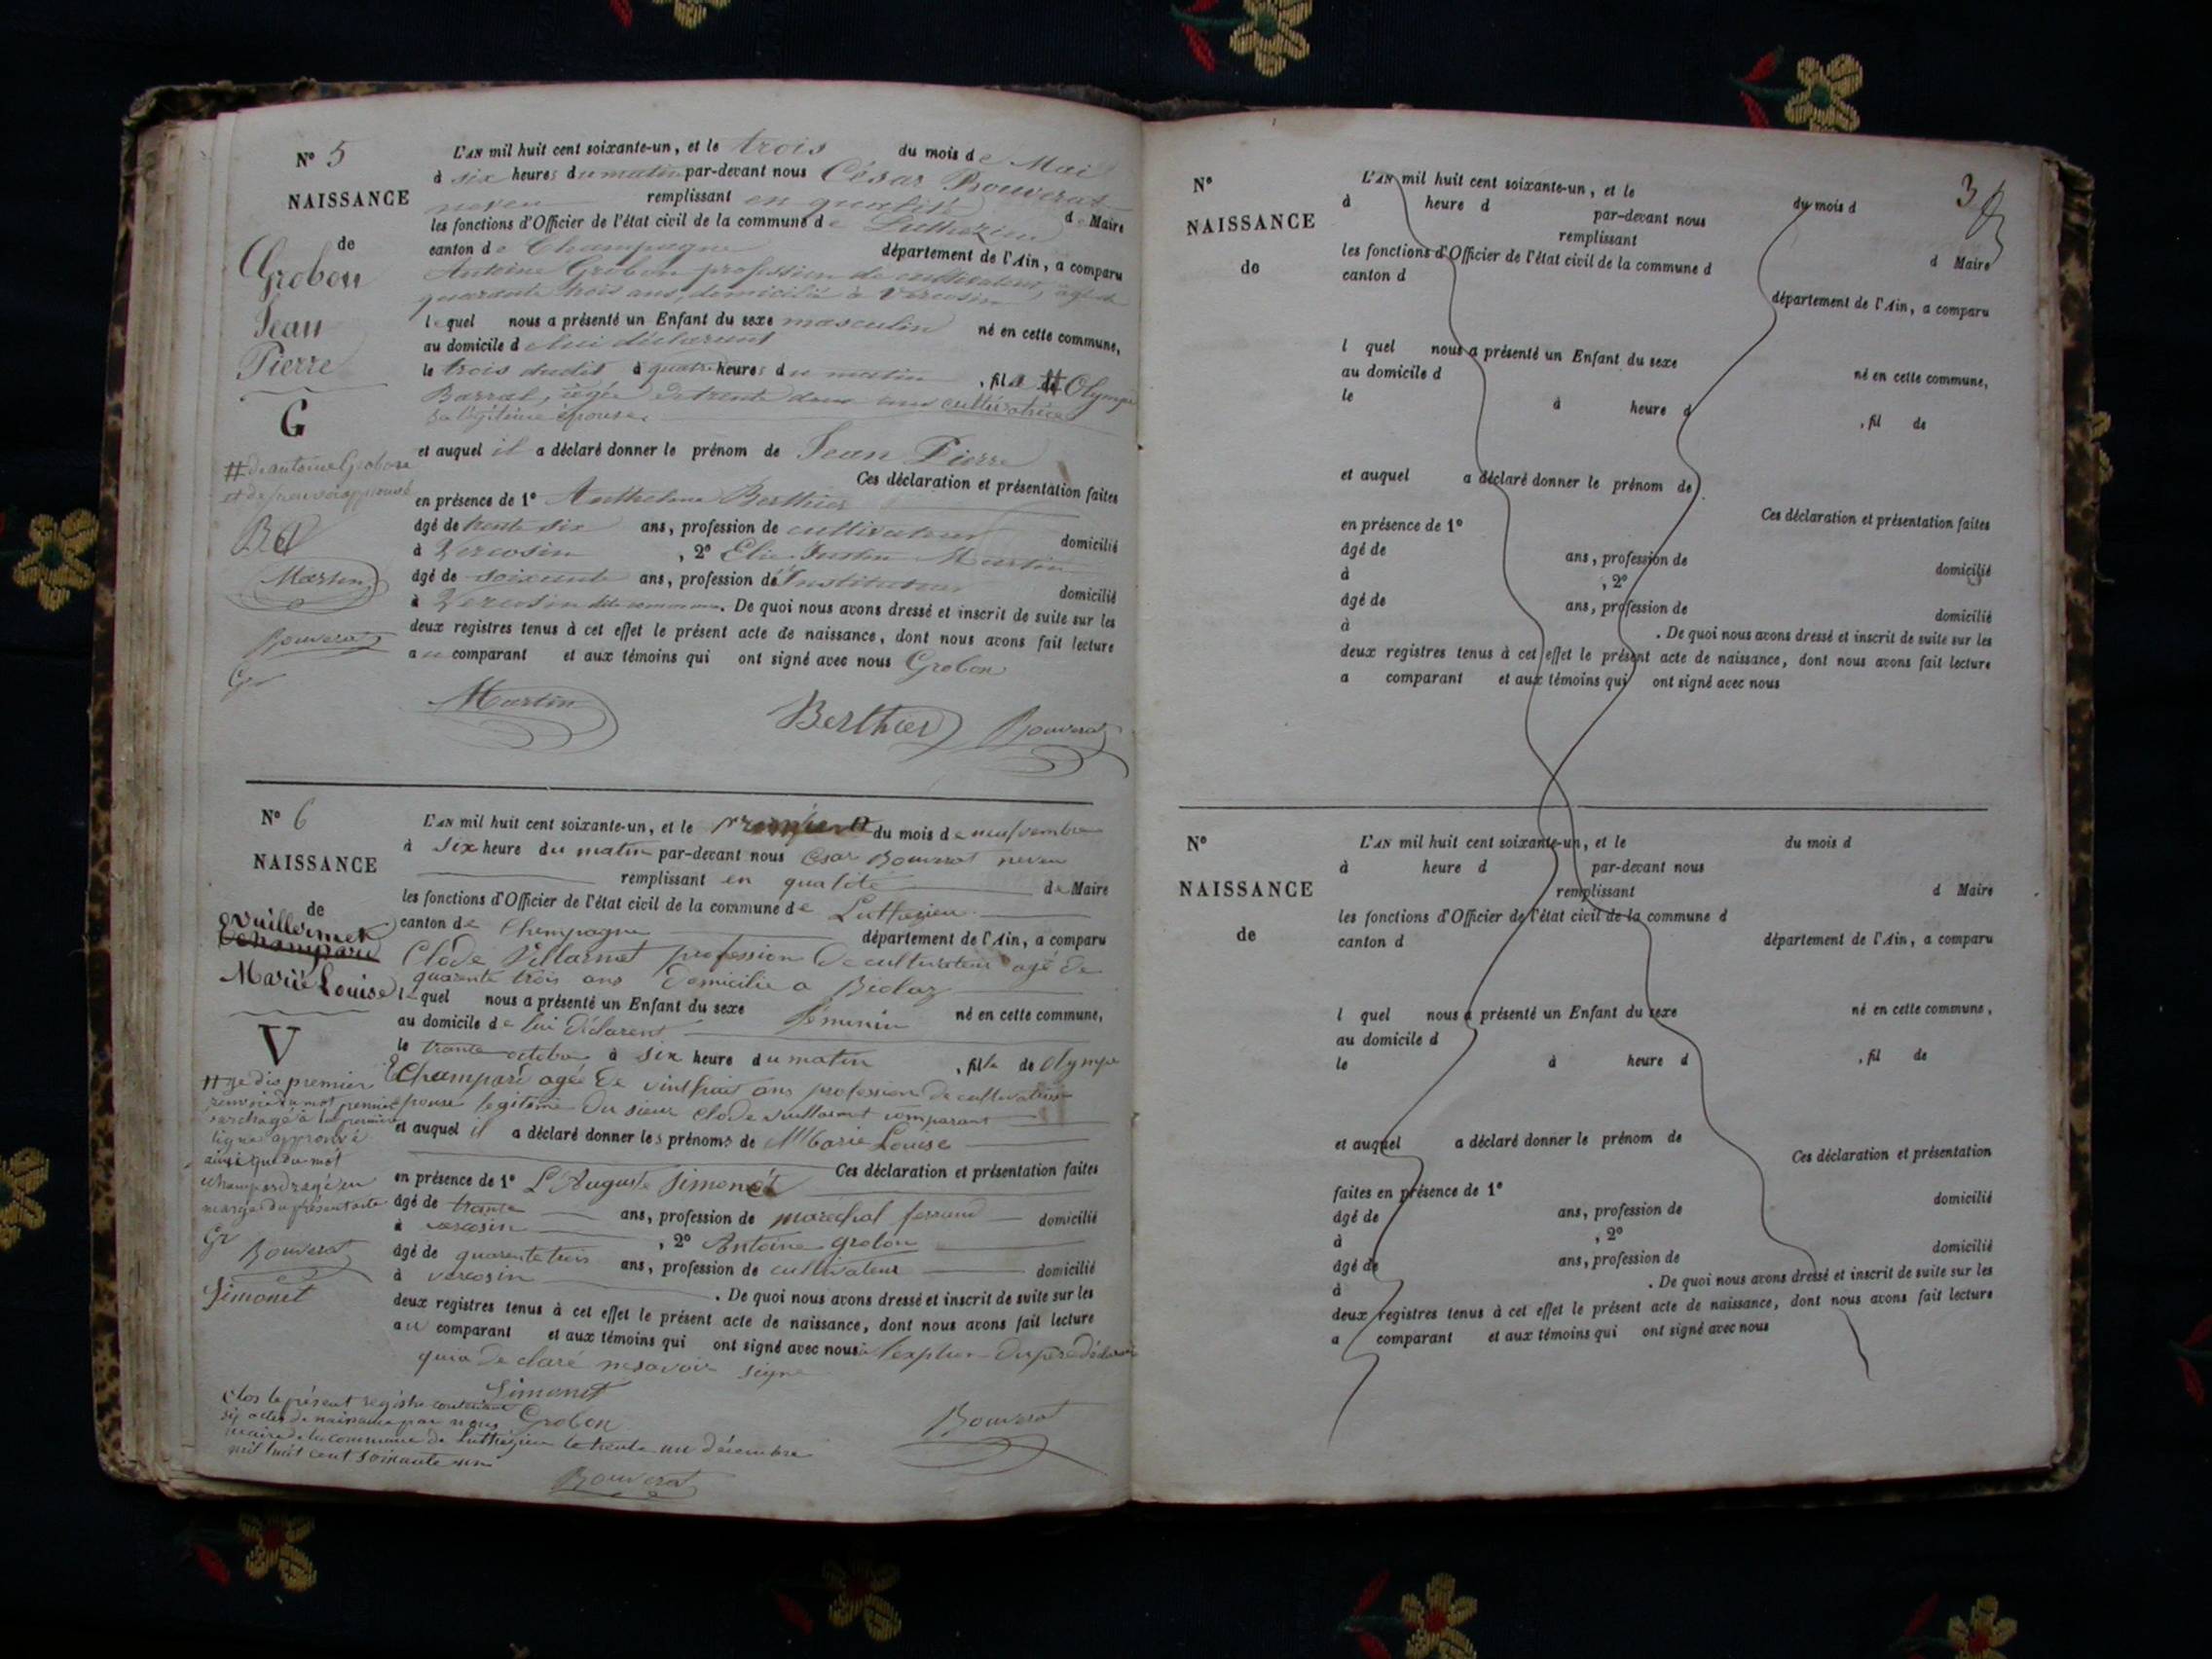 N° 5
NAISSANCE
de
Grobon
Jean
Pierre
G
# de antoine Grobon
et de renvoi approuvé
Martin
Bouverat
Gr
L'AN mil huit cent soixante-un, et le trois du mois de Mai
à six heures du matin par-devant nous César Bouverat
neveu remplissant en qualité de Maire
les fonctions d'Officier de l'état civil de la commune de Luthézieu
canton de Champagne département de l'Ain, a comparu
Antoine Grobon profession de cultivateur, âgé de
quarante trois ans, domicilié à Vercosin
lequel nous a présenté un Enfant du sexe masculin né en cette commune,
au domicile de lui déclarant
le trois dudit à quatre heures du matin, fils # Olympe
Barral, âgée de trente deux ans cultivatrice
sa légitime épouse.
et auquel il a déclaré donner le prénom de Jean Pierre
Ces déclaration et présentation faites
en présence de 1° Anthelme Berthier
âgé de trente six ans, profession de cultivateur domicilié
à Vercosin, 2° Elie Justin Martin
âgé de soixante ans, profession d'Instituteur domicilié
à Vercosin dite commune. De quoi nous avons dressé et inscrit de suite sur les
deux registres tenus à cet effet le présent acte de naissance, dont nous avons fait lecture
au comparant et aux témoins qui ont signé avec nous Grobon
Martin Berthier Bouverat
N° 6
NAISSANCE
de
Vuillermet
Champard
Marie Louise
V
# je dis premier
renvoi du mot premier
surchargé à la première
ligne approuvé
ainsi que du mot
champard rayé en
marge du présent acte
Gr
Bouverat
Simonet
L'AN mil huit cent soixante-un, et le premier # du mois de neufvembre
à six heure du matin par-devant nous César Bouverat neveu
remplissant en qualité de Maire
les fonctions d'Officier de l'état civil de la commune de Luthezieu
canton de Champagne département de l'Ain, a comparu
Clôde Villarmet profession de cultivateur agé de
quarente trois ans Domicilie a Biolaz
lequel nous a présenté un Enfant du sexe féminin né en cette commune,
au domicile de lui déclarent
le trante octobre à six heure du matin, fille de Olympe
Champard agée de vinthuit ans profession de cultivatrice
Epouse legitime du sieur Clode vuillarmet comparant
et auquel il a déclaré donner les prénoms de Marie Louise
Ces déclaration et présentation faites
en présence de 1° L'Auguste Simonet
âgé de trante ans, profession de marechal ferrand domicilié
à vercosin, 2° Antoine grobon
âgé de quarente trois ans, profession de cultivateur domicilié
à vercosin. De quoi nous avons dressé et inscrit de suite sur les
deux registres tenus à cet effet le présent acte de naissance, dont nous avons fait lecture
au comparant et aux témoins qui ont signé avec nous à l'exption du père déclarant
qui a De claré ne savoir signe
Simonet
Grobon
Bouverat
Clos le présent registre contenant
six actes de naissance par nous
maire de la commune de Luthézieu le trente un décembre
mil huit cent soixante un
Bouverat
3
N°
NAISSANCE
de
L'AN mil huit cent soixante-un, et le du mois d
à heure d par-devant nous
remplissant d Maire
les fonctions d'Officier de l'état civil de la commune d
canton d département de l'Ain, a comparu
l quel nous a présenté un Enfant du sexe né en cette commune,
au domicile d
le à heure d, fil de
et auquel a déclaré donner le prénom de
Ces déclaration et présentation faites
en présence de 1°
âgé de ans, profession de domicilié
à, 2°
âgé de ans, profession de domicilié
à. De quoi nous avons dressé et inscrit de suite sur les
deux registres tenus à cet effet le présent acte de naissance, dont nous avons fait lecture
a comparant et aux témoins qui ont signé avec nous
N°
NAISSANCE
de
L'AN mil huit cent soixante-un, et le du mois d
à heure d par-devant nous
remplissant d Maire
les fonctions d'Officier de l'état civil de la commune d
canton d département de l'Ain, a comparu
l quel nous a présenté un Enfant du sexe né en cette commune,
au domicile d
le à heure d, fil de
et auquel a déclaré donner le prénom de
Ces déclaration et présentation
faites en présence de 1°
âgé de ans, profession de domicilié
à, 2°
âgé de ans, profession de domicilié
à. De quoi nous avons dressé et inscrit de suite sur les
deux registres tenus à cet effet le présent acte de naissance, dont nous avons fait lecture
a comparant et aux témoins qui ont signé avec nous